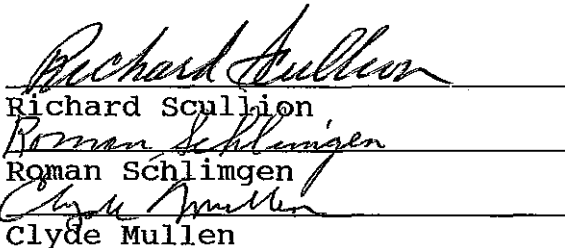 Richard Scullion
Richard Scullion
Roman Schlimgen
Roman Schlimgen
Clyde Mullen
Clyde Mullen